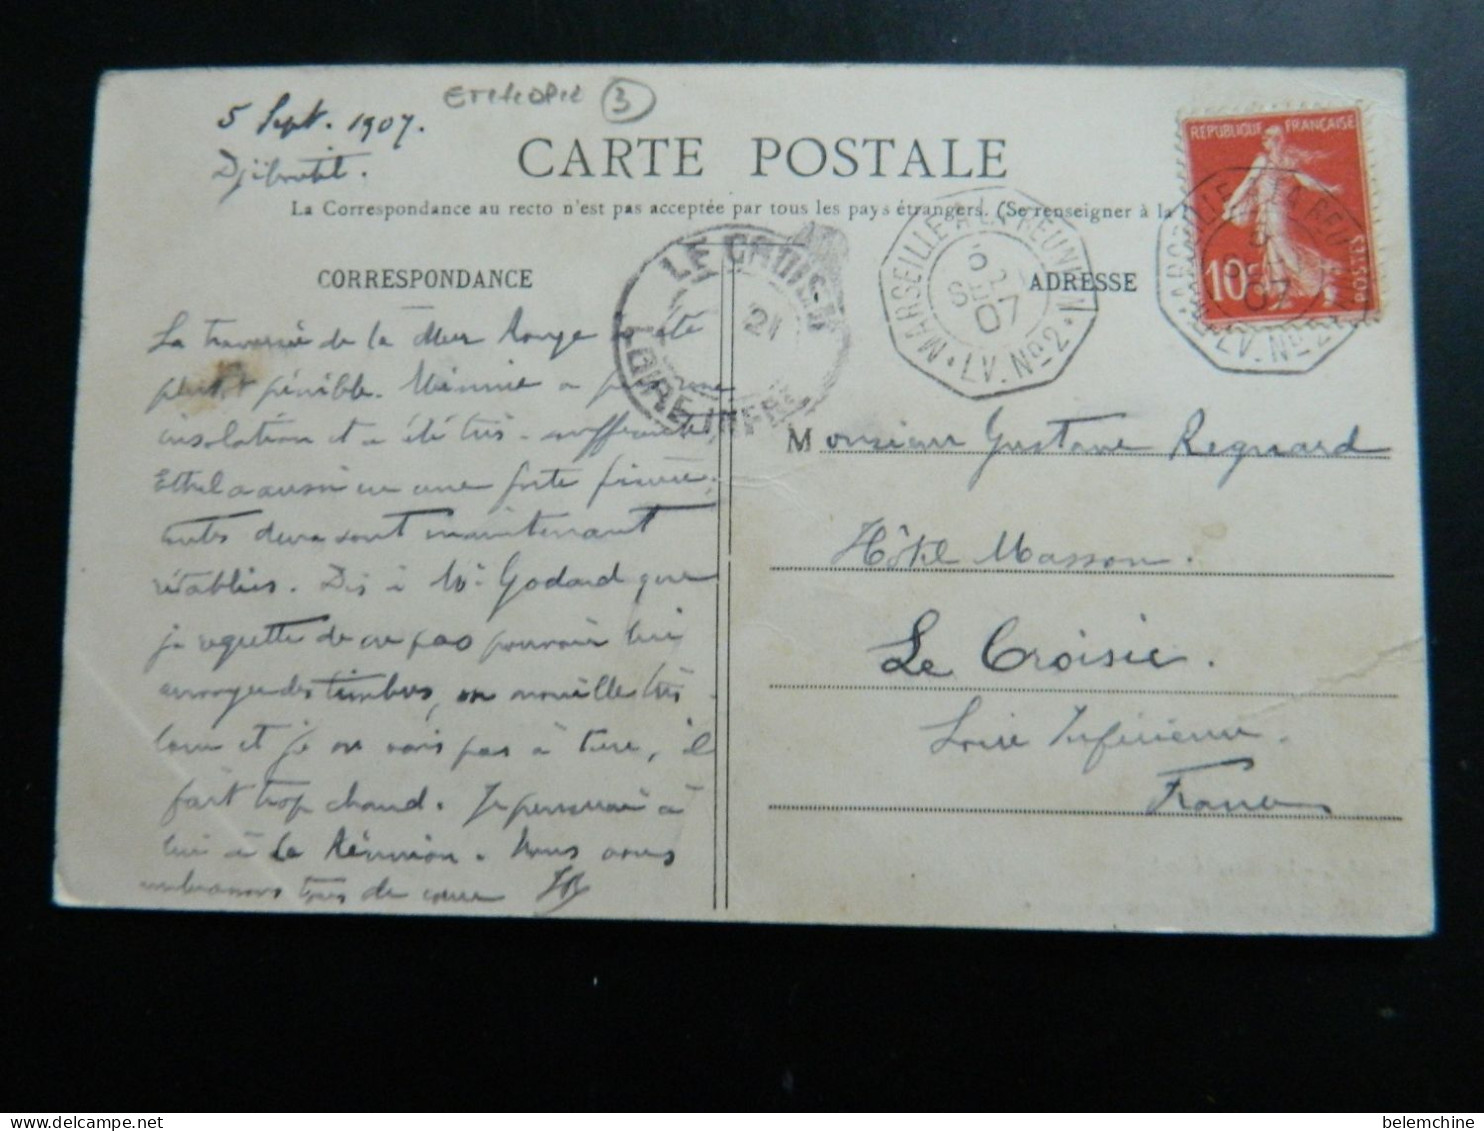 ETHIOPIE 3
5 Sept. 1907.
Djibouti.
CARTE POSTALE
La Correspondance au recto n'est pas acceptée par tous les pays étrangers. (Se renseigner à la
CORRESPONDANCE
ADRESSE
La traversée de la Mer Rouge a été
plutôt pénible. Minnie a une
insolation et a été très souffrante,
Ethel a aussi eu une forte fièvre,
toutes deux sont maintenant
rétablies. Dis à Mr Godard que
je regrette de ne pas pouvoir lui
envoyer des timbres, on mouille très
loin et je ne vais pas à terre, il
fait trop chaud. Je penserai à
lui à La Réunion. Nous vous
embrassons tous de coeur
Monsieur Gustave Regnard
Hôtel Masson.
Le Croisic.
Loire Inférieure.
France
REPUBLIQUE FRANÇAISE
10
POSTES
MARSEILLE A LA REUNION
5
SEPT
07
LV. No 2
LE CROISIC
21
LOIRE INFRE
belemchine